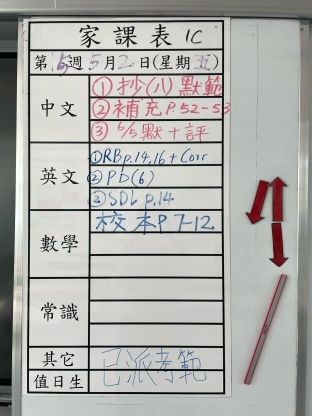 家課表 1C
第15週5月2日(星期五)
中文
① 抄(八)默範
② 補充P52-53
③ 6/5默+評
英文
① RB p.14,16 + Corr
② PD(6)
③ SDL p.14
數學
校本P7-12
常識
其它
已派考範
值日生